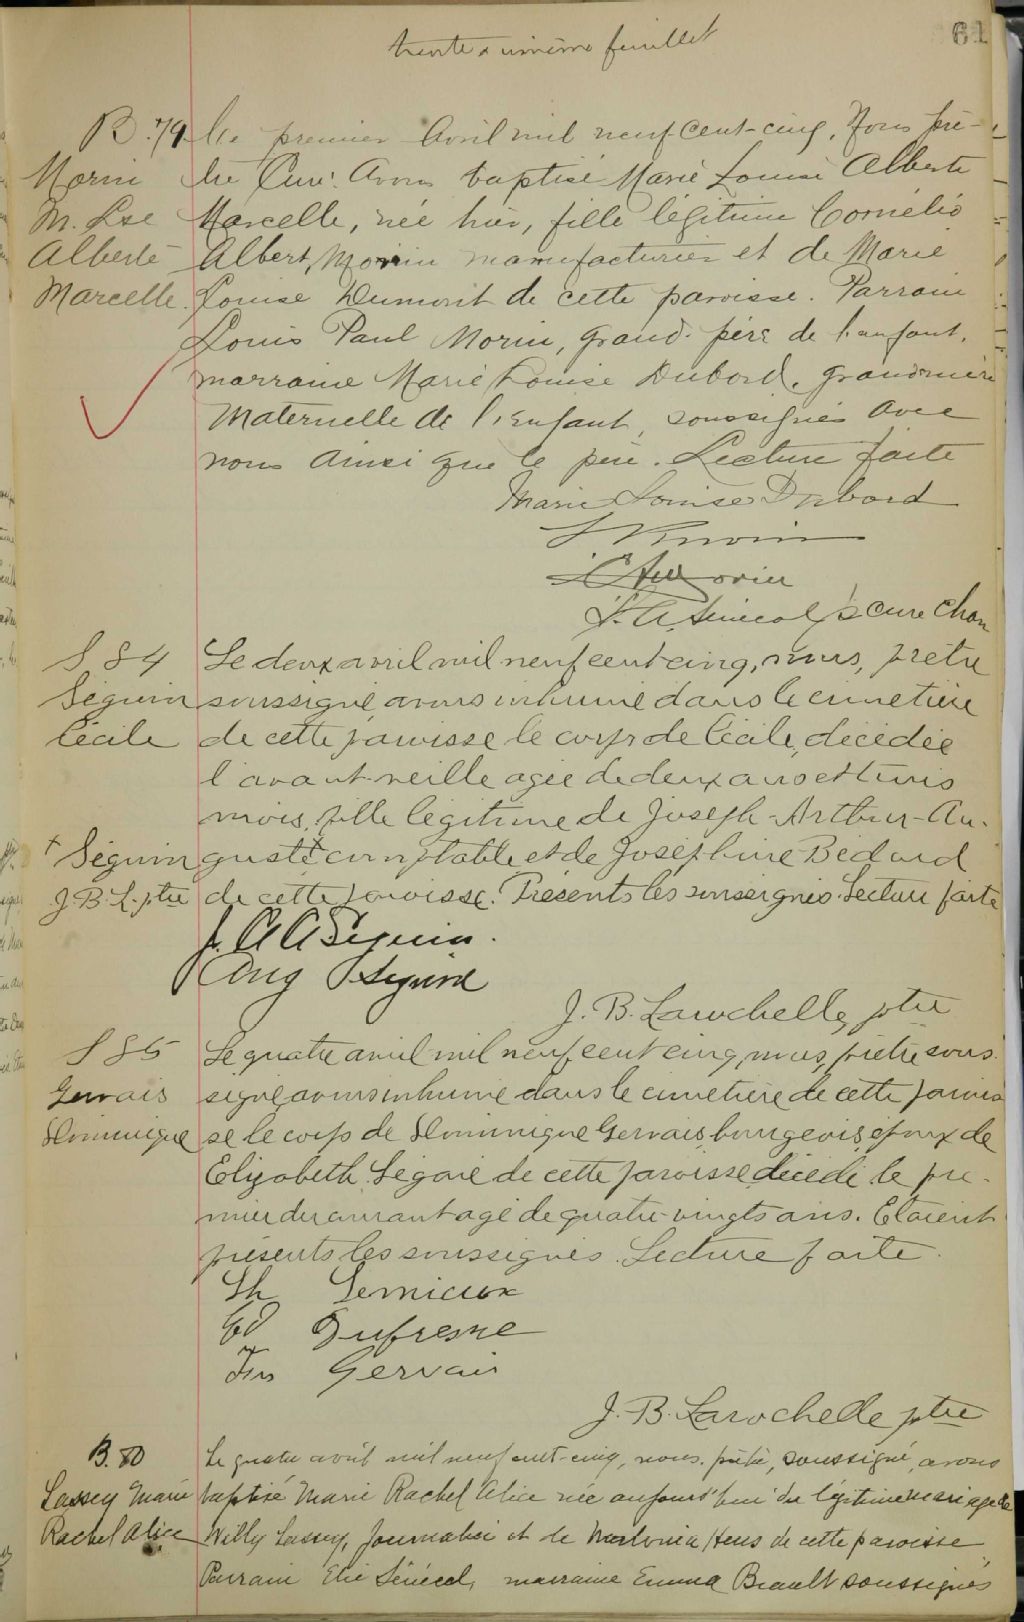 trente & unième feuillet
61
B. 79
Morin
M. Lse
Alberte
Marcelle.
Le premier Avril mil neuf cent-cinq, Nous prê-
tre Curé. Avons baptisé Marie Louise Alberte
Marcelle, née hier, fille légitime Cornélio
Albert Morin manufacturier et de Marie
Louise Dumont de cette paroisse. Parrain
Louis Paul Morin, grand-père de l'enfant,
marraine Marie Louise Dubord, grandmère
Maternelle de l'Enfant, soussignés avec
nous ainsi que le père. Lecture faite
Marie Louise Dubord
Morin
Morin
Curé Chan
S 84
Séguin
Cécile
Le deux avril mil neuf cent cinq, nous, prêtre
soussigné, avons inhumé dans le cimetière
de cette paroisse le corps de Cécile, décédée
l'avant-veille agée de deux ans et trois
mois, fille légitime de Joseph-Arthur-Au-
+ Séguin
J. B. L. ptre
guste + comptable et de Joséphine Bédard
de cette paroisse. Présents les soussignés. Lecture faite
J. A A Seguin.
Aug Séguin
J. B. Larochelle, ptre
S 85
Gervais
Dominique
Le quatre avril mil neuf cent cinq, nous, prêtre sous-
signé, avons inhumé dans le cimetière de cette parois
se le corps de Dominique Gervais, bourgeois, époux de
Elizabeth Légaré de cette paroisse, décédé le pre-
mier du courant agé de quatre-vingts ans. Etaient
présents les soussignés. Lecture faite.
Th Lemieux
Ed Dufresne
Gervais
J. B. Larochelle ptre
B. 80
Lassey Marie
Rachel Alice
Le quatre avril mil neuf cent-cinq, nous, prêtre, soussigné, avons
baptisé Marie Rachel Alice née aujourd'hui du légitime mariage de
Willy Lassey, Journalier et de de cette paroisse
Parrain Elie Sénécal, marraine Emma Brault soussignés